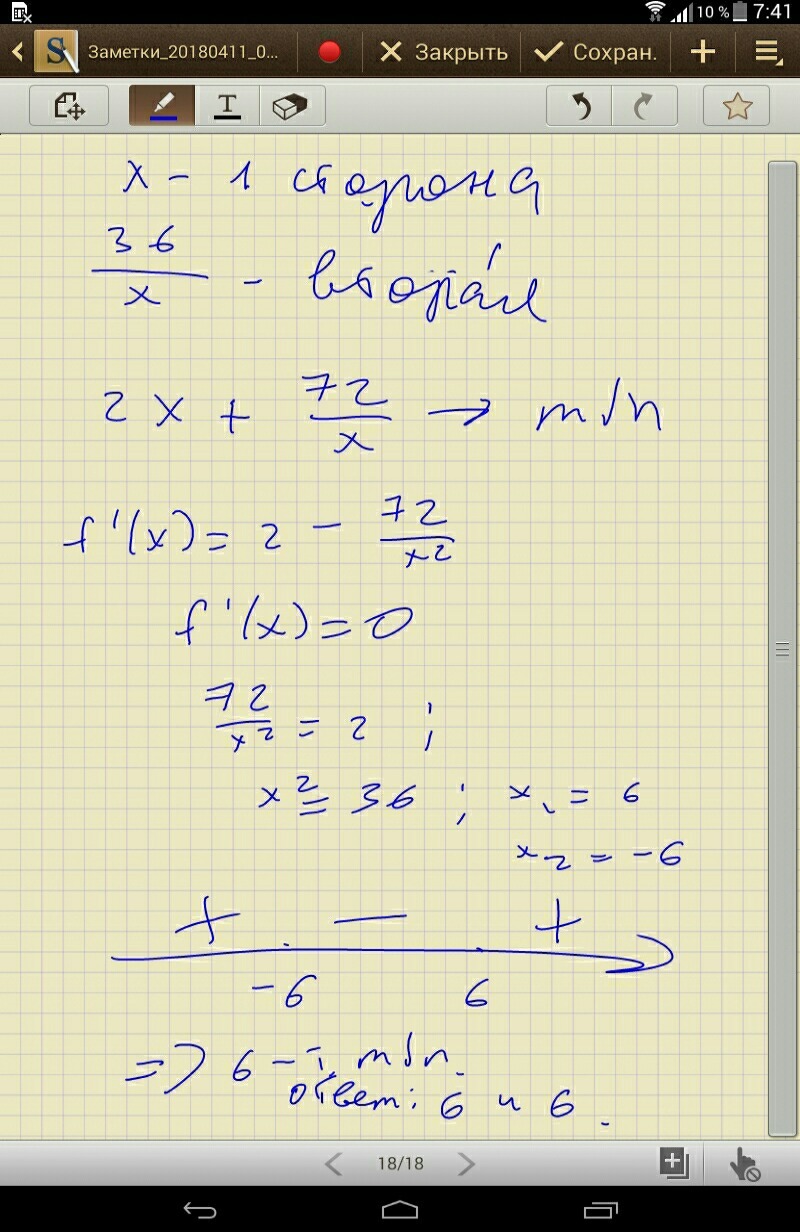 10 % 7:41
Заметки_20180411_0... Закрыть Сохран.
T
x - 1 сторона
36/x - вторая
2x + 72/x → min
f'(x) = 2 - 72/x²
f'(x) = 0
72/x² = 2 ;
x² = 36 ; x₁ = 6
x₂ = -6
+ − +
-6 6
=> 6 - т. min.
ответ: 6 и 6.
18/18